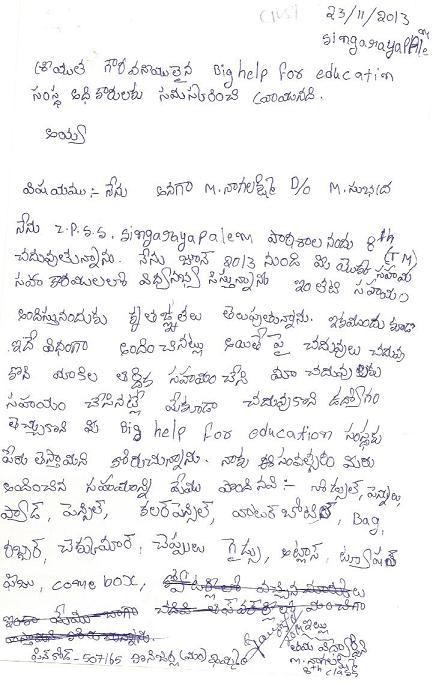 23/11/2013
Singarayapalem
శ్రీయుత గౌరవనీయులైన Big help for education
సంస్థ అధికారులకు నమస్కరించి వ్రాయునది.
అయ్యా
విషయము :- నేను అనగా M. నాగలక్ష్మి D/o M. సుభద్ర
నేను Z.P.S.S. Singarayapalem పాఠశాల నందు 8th (TM)
చదువుతున్నాను. నేను జూన్ 2013 నుండి మీ యొక్క సహాయ
సహకారములతో
అందిస్తునందుకు కృతజ్ఞతలు తెలుపుతున్నాను. ఇకముందు కూడా
ఇదే విధంగా అందించినట్లు అయితే పై చదువులు చదువు
కొని మాకిల ఆర్థిక సహాయం చేసి మా చదువులకు
సహాయం చేసినట్లే మేకూడా చదువుకొని ఉద్యోగం
తెచ్చుకొని మీ Big help for education సంస్థకు
పేరు తెస్తామని కోరుచున్నాను. నాకు ఈ సంవత్సరం మీరు
అందించిన సహాయాన్ని మేము పొందినవి :- నోట్సుల్, పెన్నులు,
ప్యాడ్, పెన్సిల్, కలర్ పెన్సిల్, వాటర్ బాటిల్, Bag,
రబ్బర్, చెక్కుమార్, చెప్పులు గైడ్సు, అట్లాస్, ట్యూషన్
ఫీజు, come box,
ఇట్లు
తమ విద్యార్థిని
M. నాగలక్ష్మి
8th class
పిన్ కోడ్ - 507165